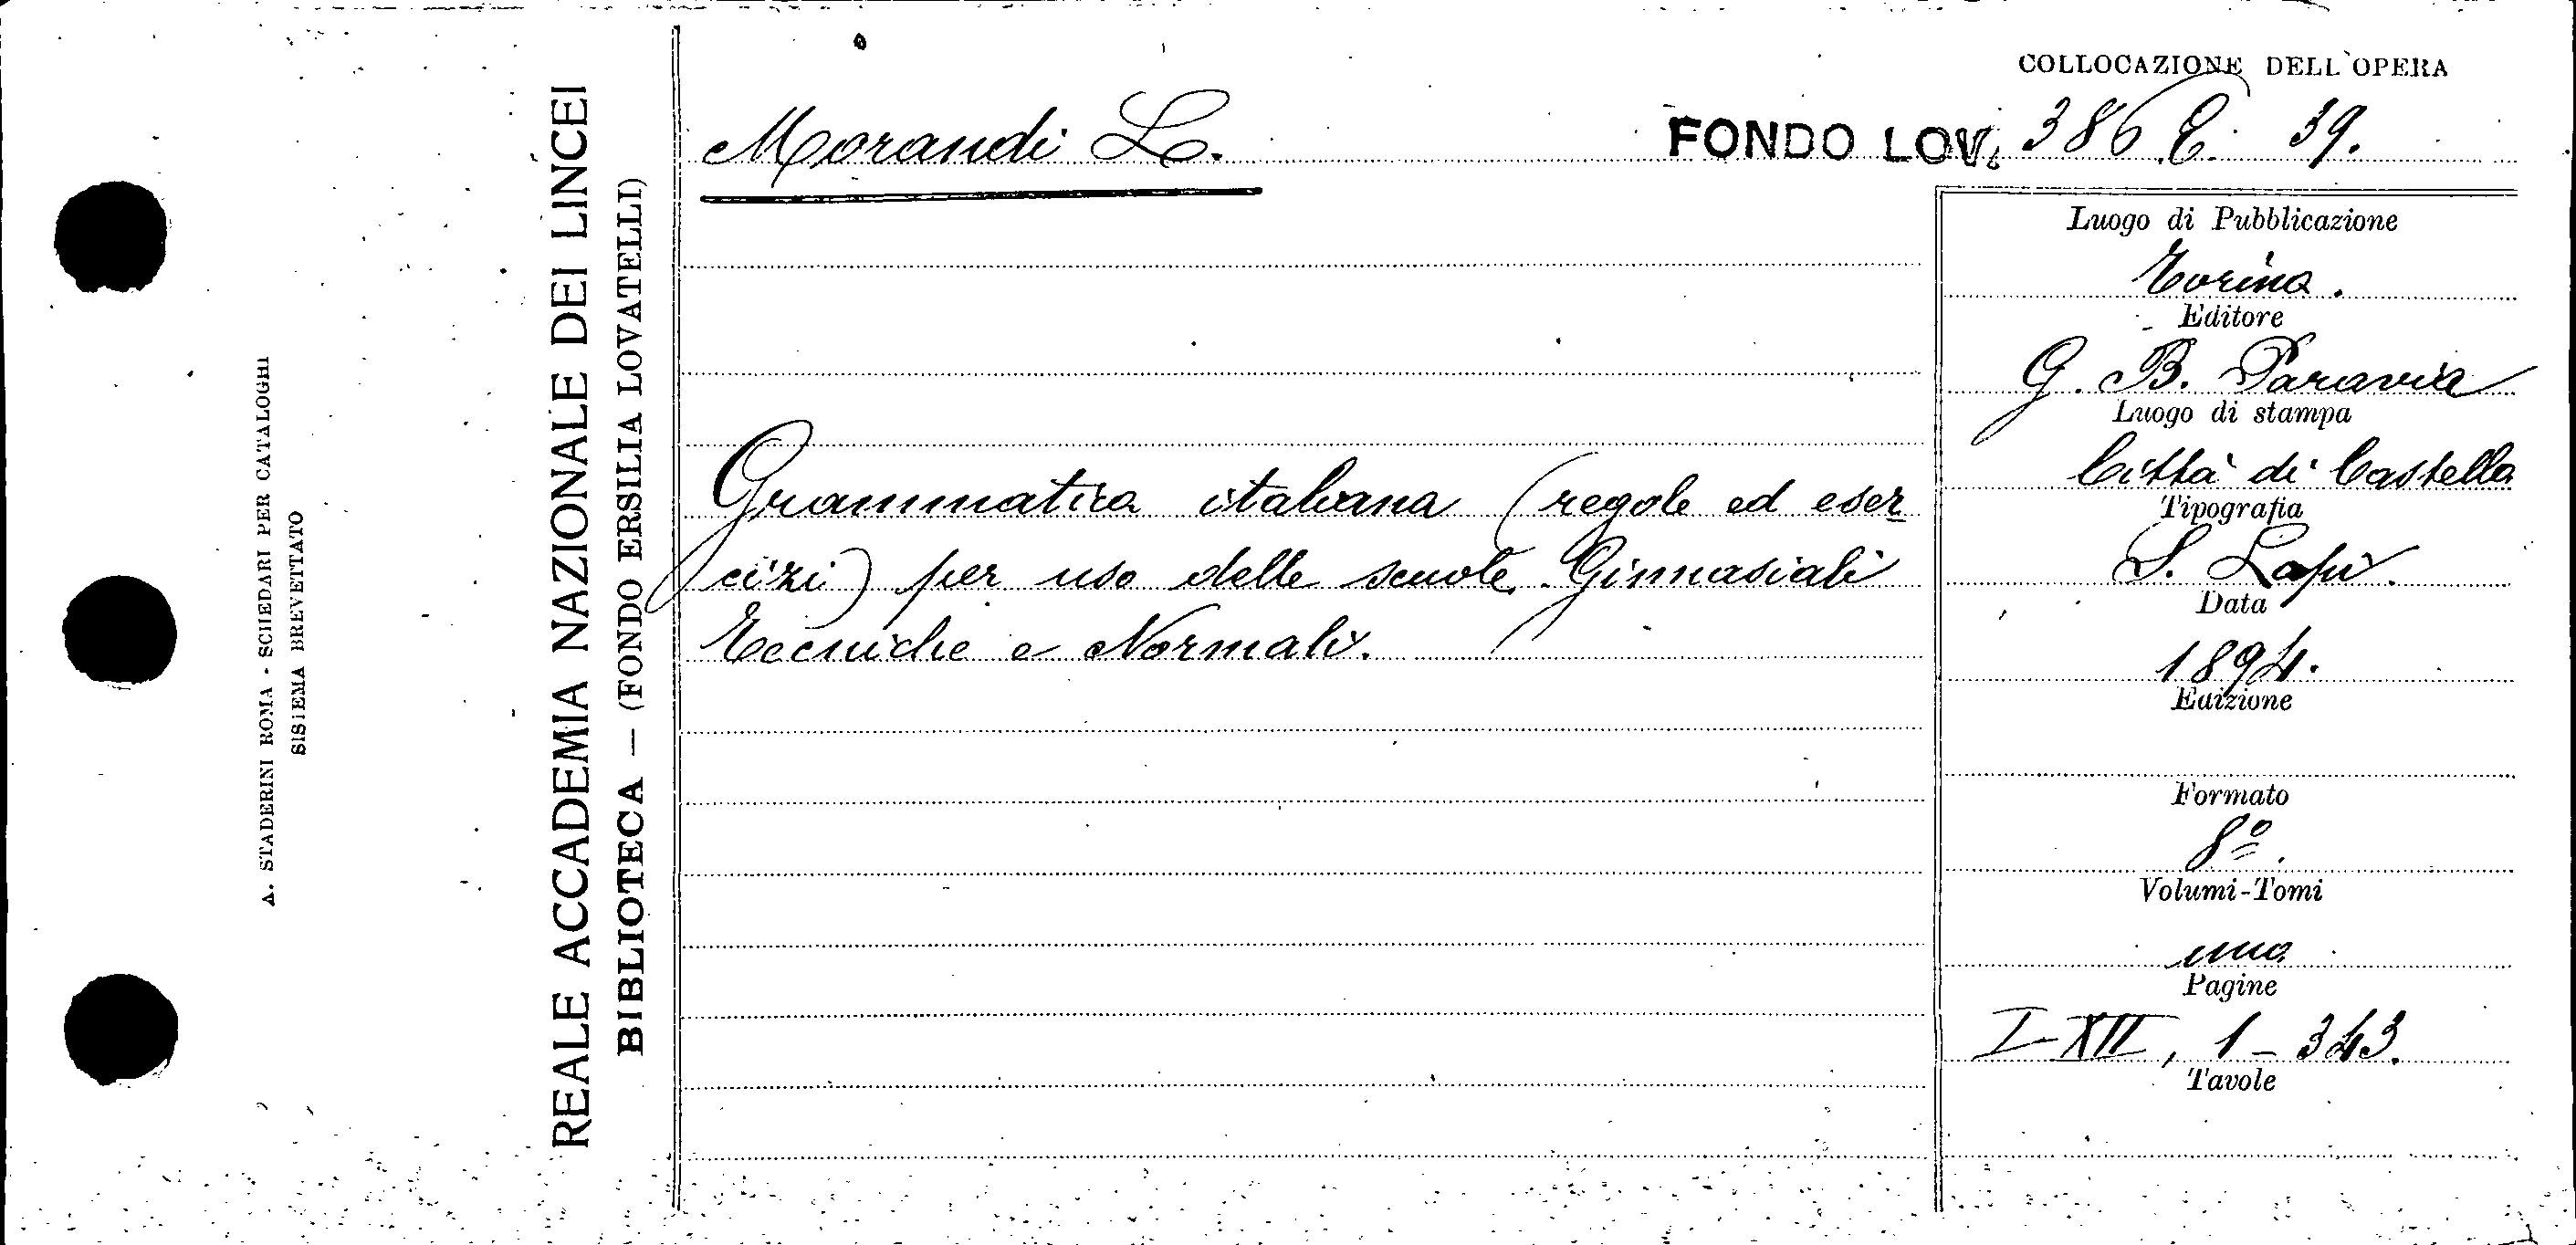 COLLOCAZIONE DELL'OPERA
Morandi L.
FONDO LOV. 386 E. 39.
Grammatica italiana (regole ed eser
cizi) per uso delle scuole Ginnasiali
Tecniche e Normali.
Luogo di Pubblicazione
Torino.
Editore
G. B. Paravia
Luogo di stampa
Città di Castello
Tipografia
S. Lapi.
Data
1894.
Edizione
Formato
8º.
Volumi-Tomi
uno
Pagine
I-XII, 1-343.
Tavole
REALE ACCADEMIA NAZIONALE DEI LINCEI
BIBLIOTECA — (FONDO ERSILIA LOVATELLI)
A. STADERINI ROMA - SCHEDARI PER CATALOGHI
SISTEMA BREVETTATO